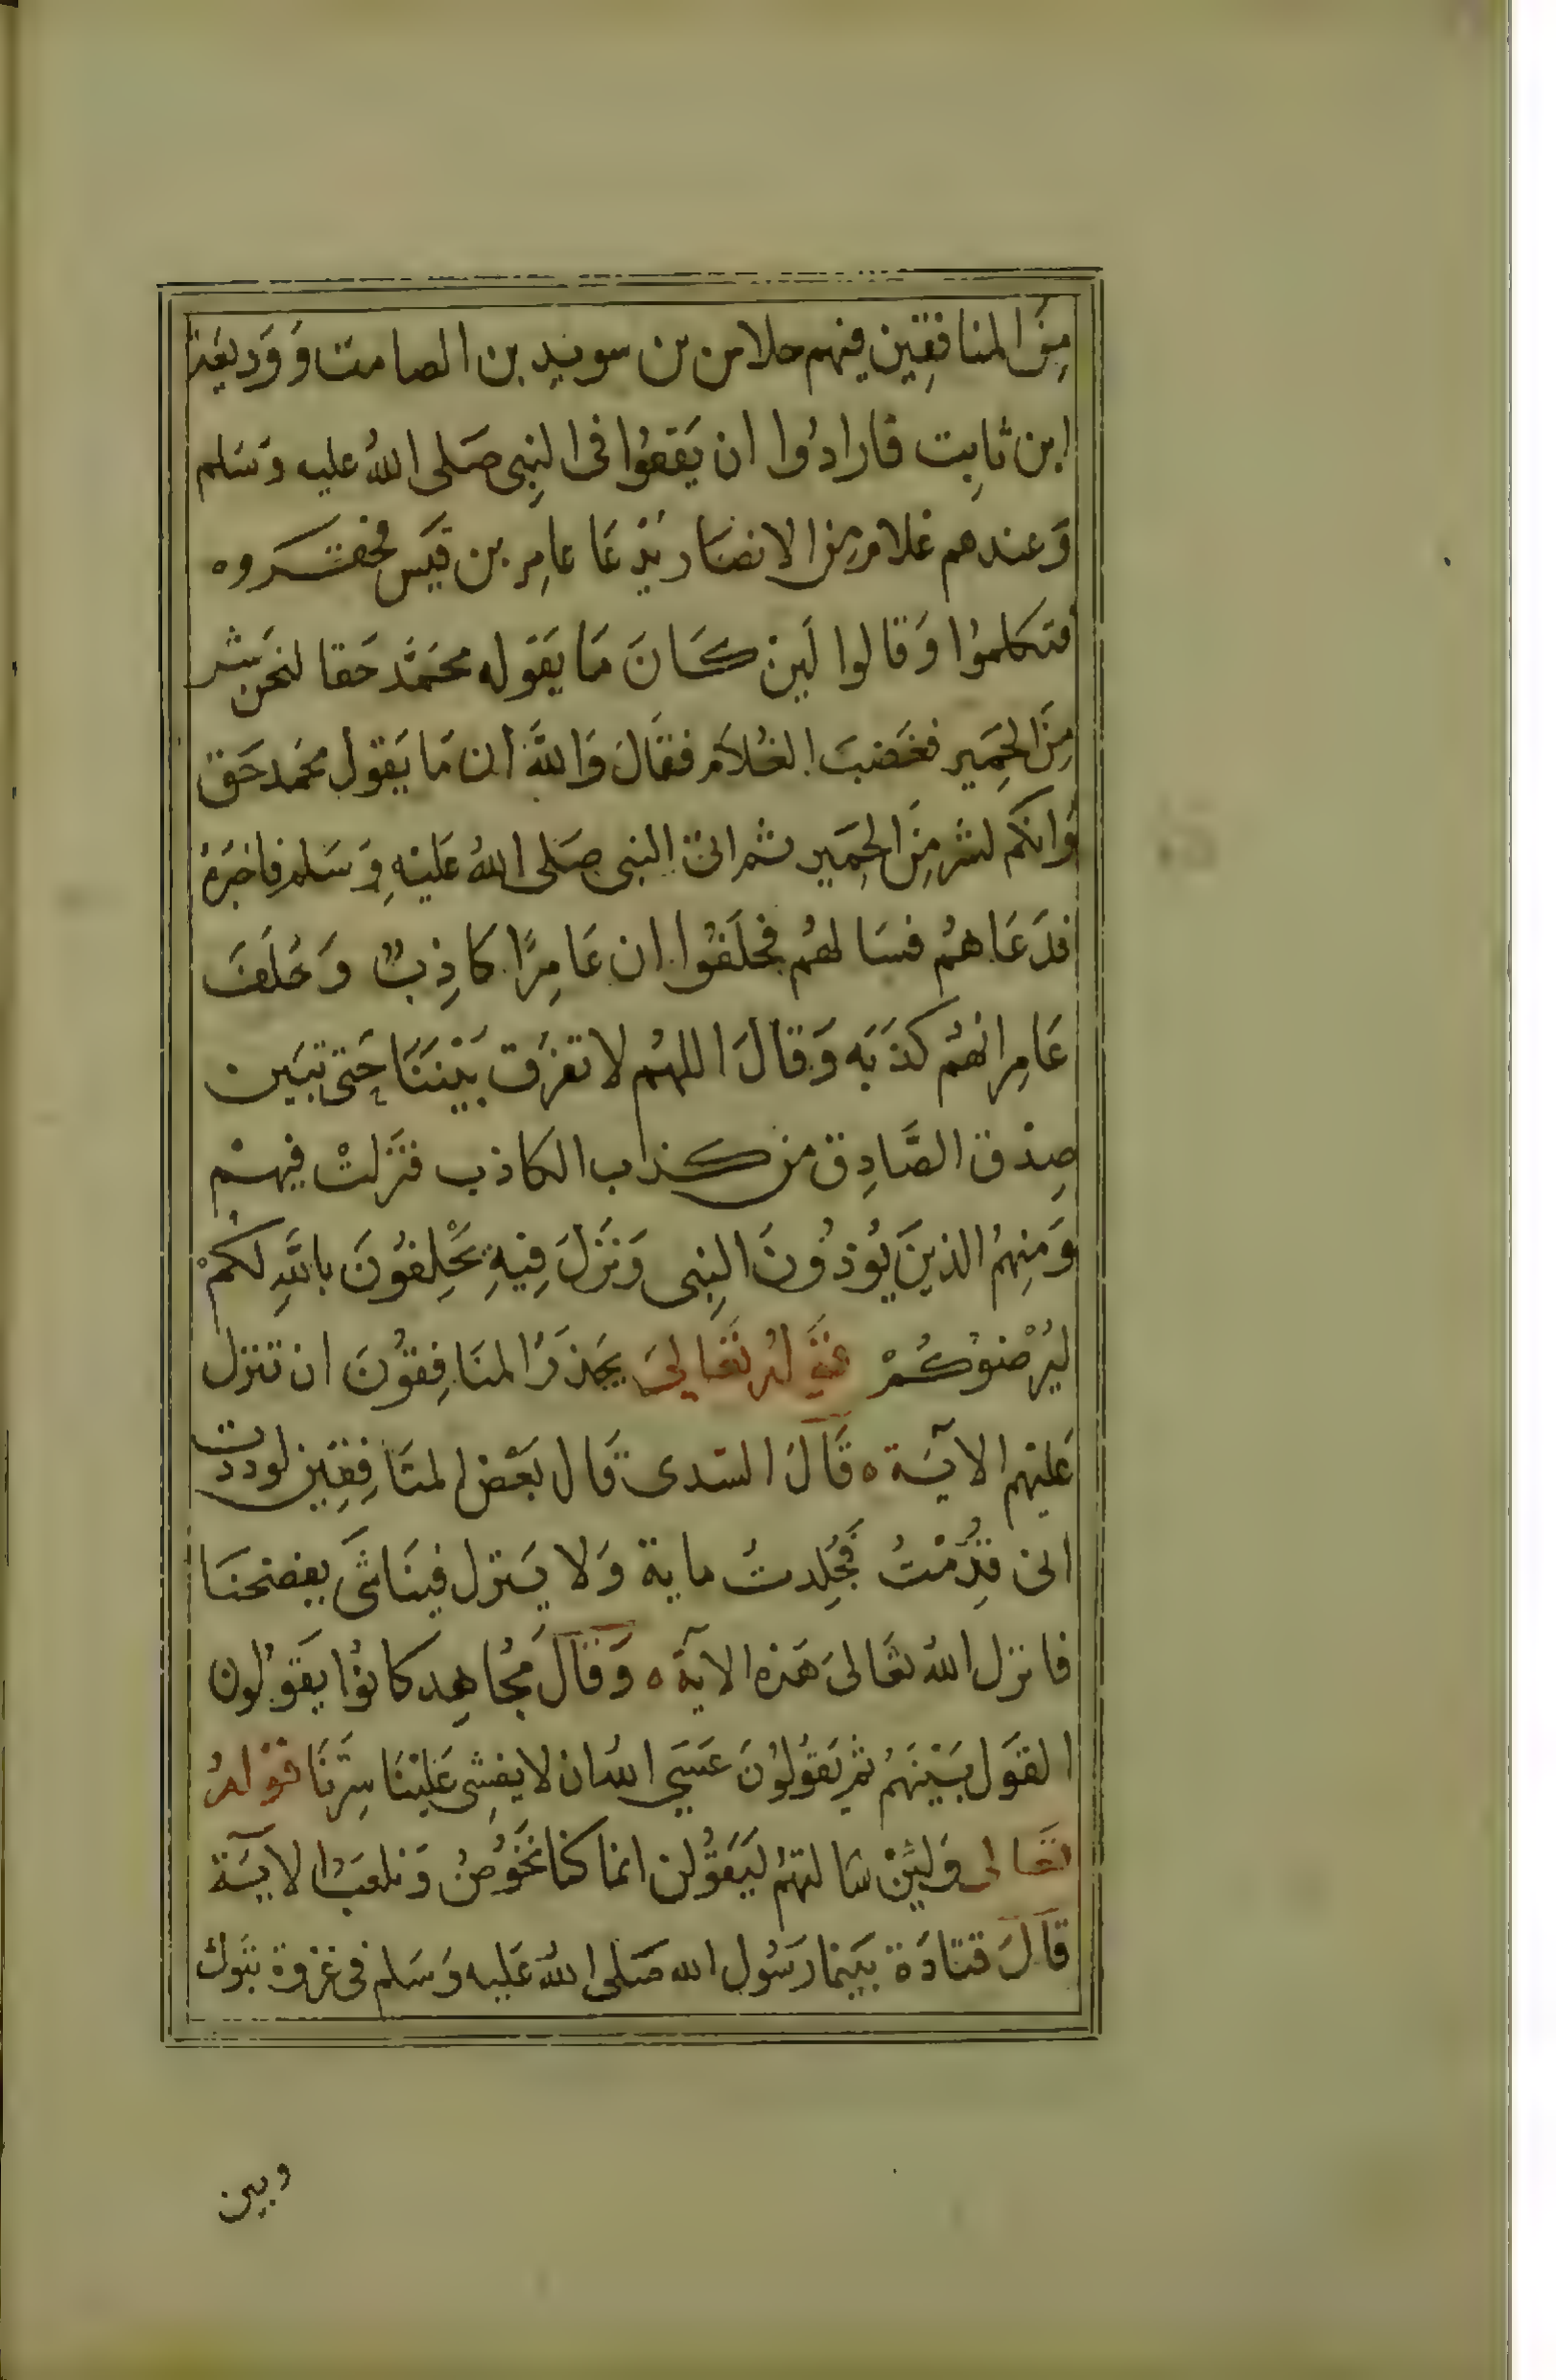 مِنَ المنافقِين فيهم حلاس بن سويد بن الصامت وَوَديعَة
ابن ثابِت فارادُوا ان يَقعُوا فى النِبى صَلى اللهُ عليه وَسَلم
وَعندهم غلام مِن الانصَار يُدعَا عامِر بن قيَس فحقـــروه
فتكلموُا وَقالوا لَين كَانَ مَا يقَوله محمَّد حَقا لنحن شر
مِنَ الحِمَير فغَضبَ الغُلاَم فقَالَ وَاللَّه ان مَا يَقول محَمد حَق
وَانكم لشر مِنَ الحِمَير ثم اتى النبى صَلى اللهُ عَليْهِ وَسَلم فاخبرَهُ
فدَعَاهُم فسَالهُم فحلَفوُا ان عَامِرًا كاذِبٌ وَحَلَفَ
عَامِر انهُم كذَبَه وَقالَ اللهُم لا تفرَق بَيْننَا حَتى تبَين
صِدْق الصَّادِق من كذب الكاذب فنَزلتْ فيهـْم
وَمنِهُم الذينَ يُوذوُنَ النِبى وَنَزلَ فِيهِ يَحْلِفوُنَ باللَّهِ لكمْ
ليُرْضوُكُمْ قَولهُ تعَالىَ يحَذرُ المنَافِقوُنَ ان تنزل
عَليهم الآيَة ه قَالَ السَدى قَال بَعْض المنَافِقِين لوددت
انى قدِّمْتُ فجُلِدتُ ماية وَلا يَنزل فينَا شَى يفضحنَا
فانزل اللهُ تعَالىَ هَذه الآية ه وَقَالَ مجُاهِد كانوُا يقَولون
القَول بَيْنَهمُ ثم يَقوُلوُنَ عَسَي اللهُ ان لا يفشِى عَلينَا سِرَّنَا قَوْلهُ
تعَالى وَلئِنْ سَالتهمُ ليَقَوُلن انما كنا نخَوُضُ وَنلعَبُ الآيَة
قَالَ قتادَة بَينما رَسُول الله صَلى اللهُ عَليه وَسَلم فى غزوة تبَوك
وبين